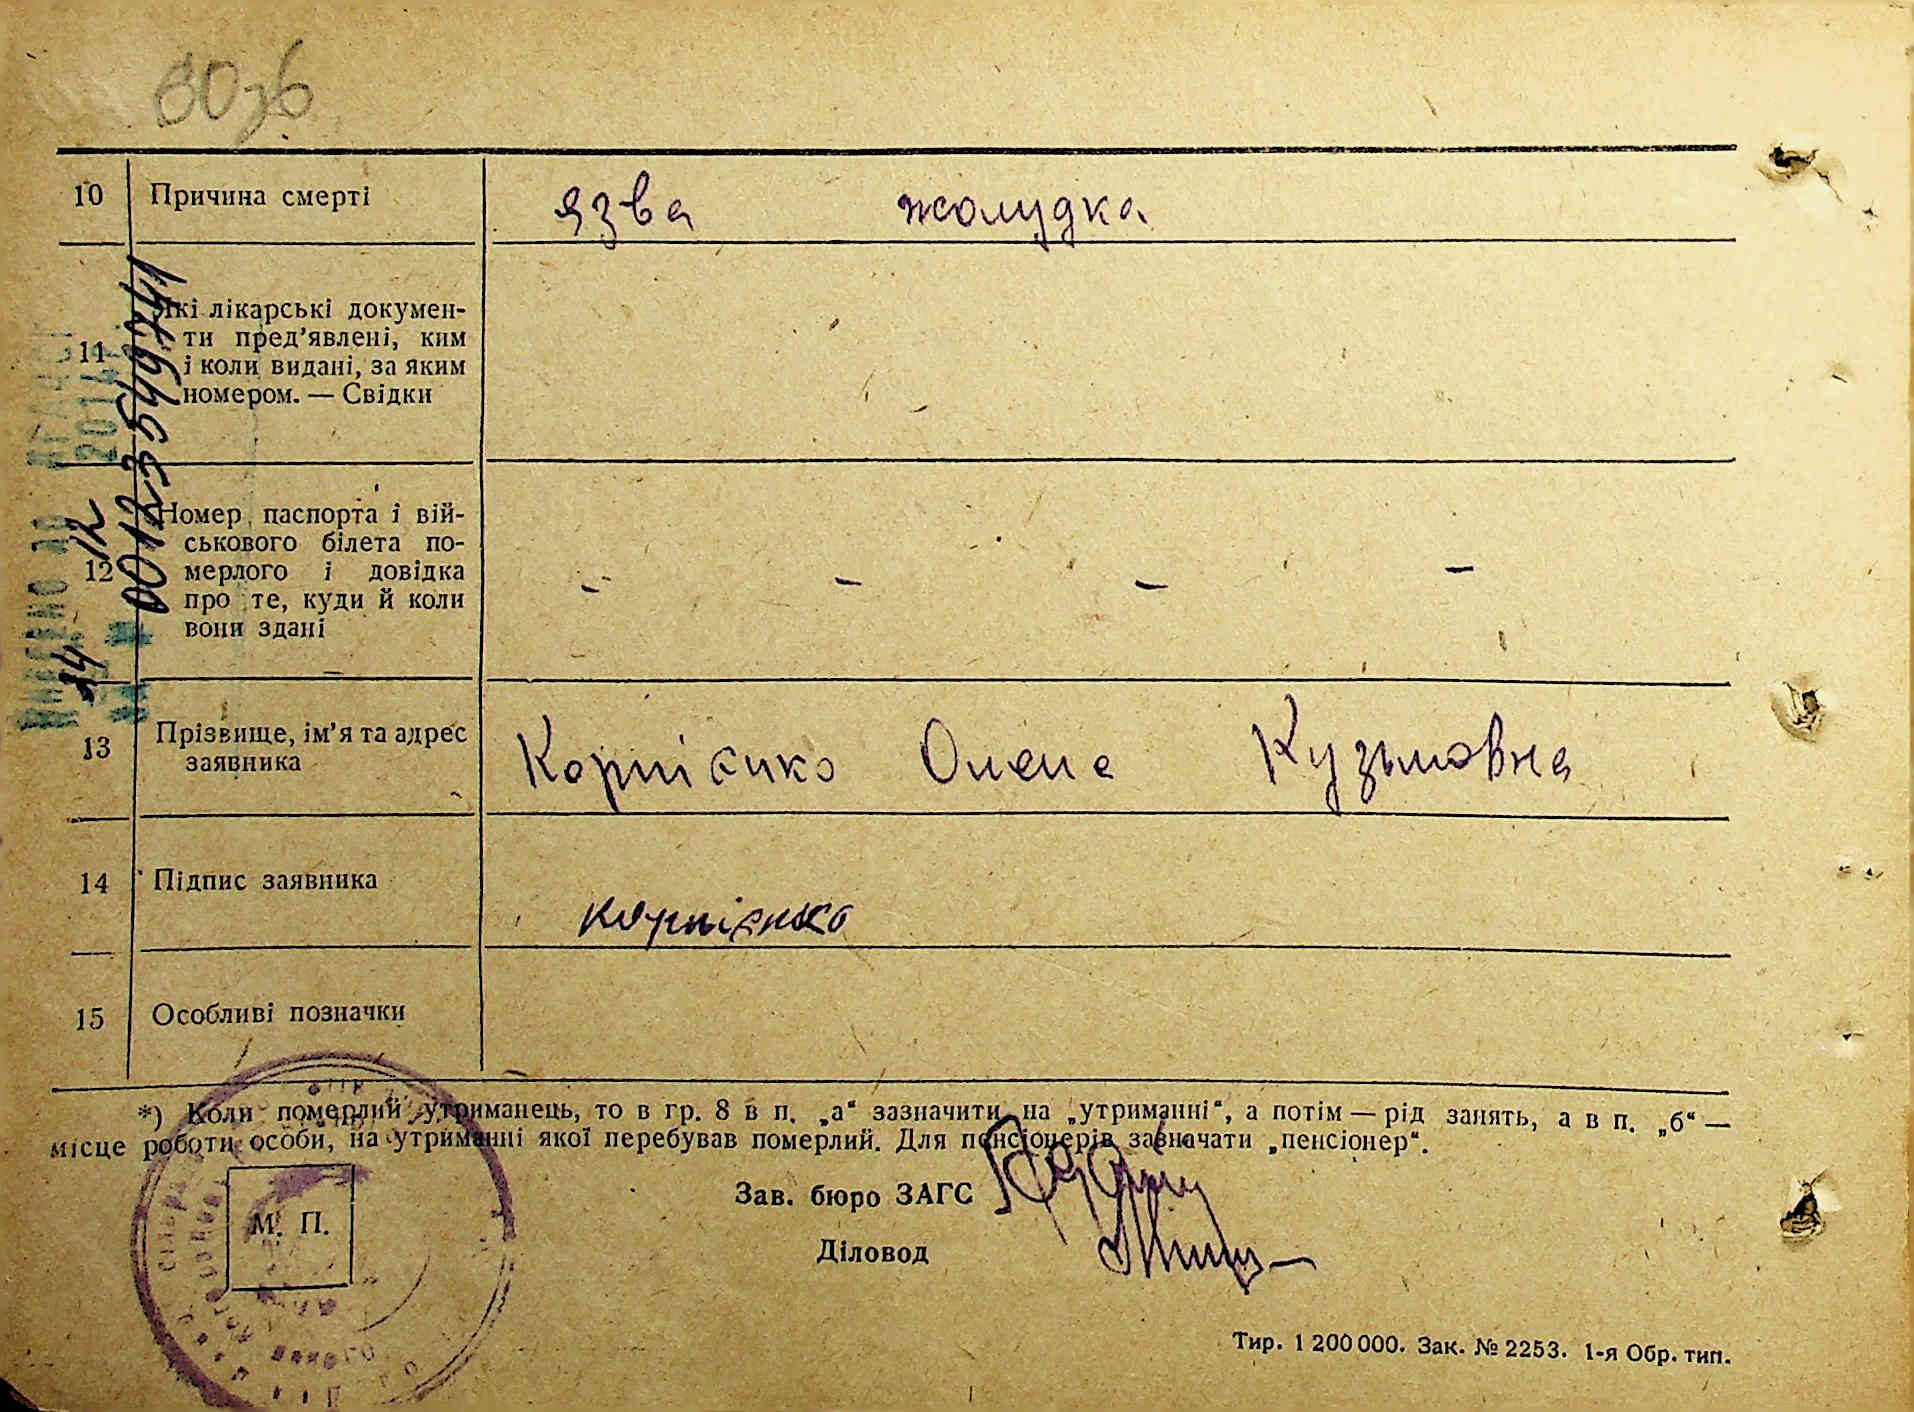 10 Причина смерті язва жолудка
11 Які лікарські докумен-
ти пред’явлені, ким
і коли видані, за яким
номером. — Свідки
00123549741
12 Номер паспорта і вій-
ськового білета по-
мерлого і довідка
про те, куди й коли
вони здані
- - - -
13 Прізвище, ім’я та адрес
заявника
Корнієнко Олена Кузьмовна
14 Підпис заявника
Корнієнко
15 Особливі позначки
*) Коли померлий утриманець, то в гр. 8 в п. „а“ зазначити на „утриманні“, а потім — рід занять, а в п. „б“ —
місце роботи особи, на утриманні якої перебував померлий. Для пенсіонерів зазначати „пенсіонер“.
Зав. бюро ЗАГС
М. П.
Діловод
Тир. 1 200 000. Зак. № 2253. 1-я Обр. тип.